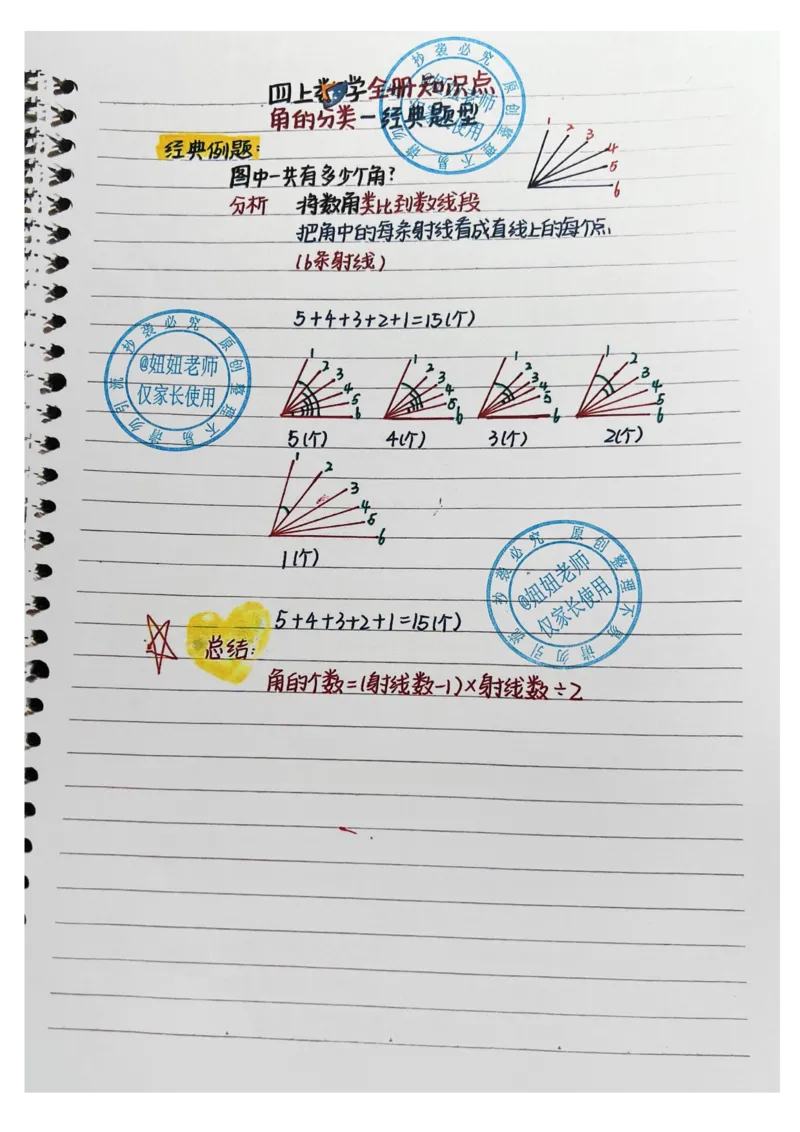 四上数学全册知识点
角的分类-经典题型
经典例题:
图中一共有多少个角?
1 2 3 4 5 6
分析 将数角类比到数线段
把角中的每条射线看成直线上的每个点,
(6条射线)
5+4+3+2+1=15(个)
1 2 3 4 5 6
1 2 3 4 5 6
1 2 3 4 5 6
1 2 3 4 5 6
5(个) 4(个) 3(个) 2(个)
1 2 3 4 5 6
1(个)
5+4+3+2+1=15(个)
总结:
角的个数=(射线数-1)×射线数÷2
原创整理不易 请勿引流 抄袭必究
@妞妞老师
仅家长使用
原创整理不易 请勿引流 抄袭必究
@妞妞老师
仅家长使用
原创整理不易 请勿 抄袭必究
@妞妞老师
使用